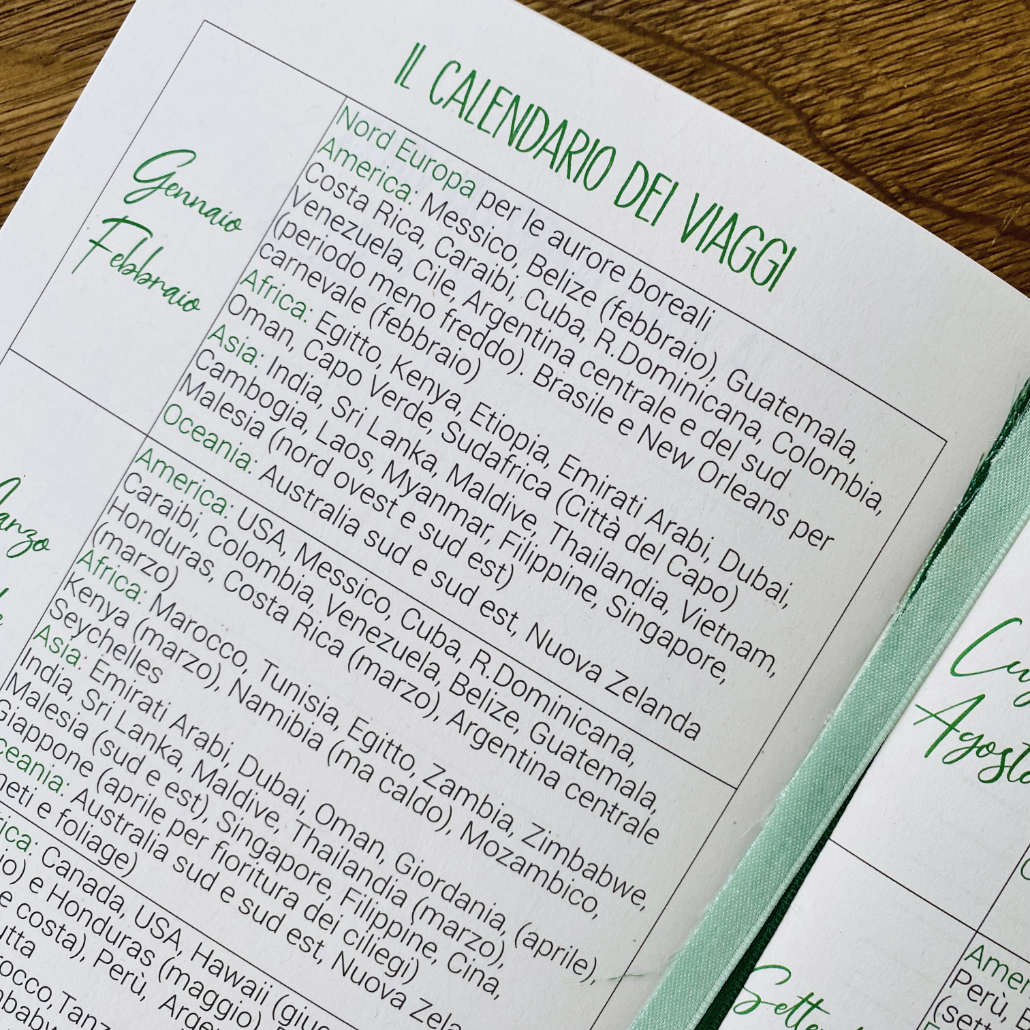 IL CALENDARIO DEI VIAGGI
Gennaio
Febbraio
Nord Europa per le aurore boreali
America: Messico, Belize (febbraio), Guatemala,
Costa Rica, Caraibi, Cuba, R.Dominicana, Colombia,
Venezuela, Cile, Argentina centrale e del sud
(periodo meno freddo). Brasile e New Orleans per
carnevale (febbraio)
Africa: Egitto, Kenya, Etiopia, Emirati Arabi, Dubai,
Oman, Capo Verde, Sudafrica (Città del Capo)
Asia: India, Sri Lanka, Maldive, Thailandia, Vietnam,
Cambogia, Laos, Myanmar, Filippine, Singapore,
Malesia (nord ovest e sud est)
Oceania: Australia sud e sud est, Nuova Zelanda
arzo
America: USA, Messico, Cuba, R.Dominicana,
Caraibi, Colombia, Venezuela, Belize, Guatemala,
Honduras, Costa Rica (marzo), Argentina centrale
(marzo)
Africa: Marocco, Tunisia, Egitto, Zambia, Zimbabwe,
Kenya (marzo), Namibia (ma caldo), Mozambico,
Seychelles
Asia: Emirati Arabi, Dubai, Oman, Giordania, (aprile),
India, Sri Lanka, Maldive, Thailandia (marzo),
Malesia (sud e est), Singapore, Filippine, Cina,
Giappone (aprile per fioritura dei ciliegi)
ceania: Australia sud e sud est, Nuova Zela
neti e foliage)
rica: Canada, USA, Hawaii (giug
o) e Honduras (maggio)
e costa), Perù, Arge
utta
occo, Tanz
mbabw
Lug
Agosto
Sette
Amer
Perù, B
(sett